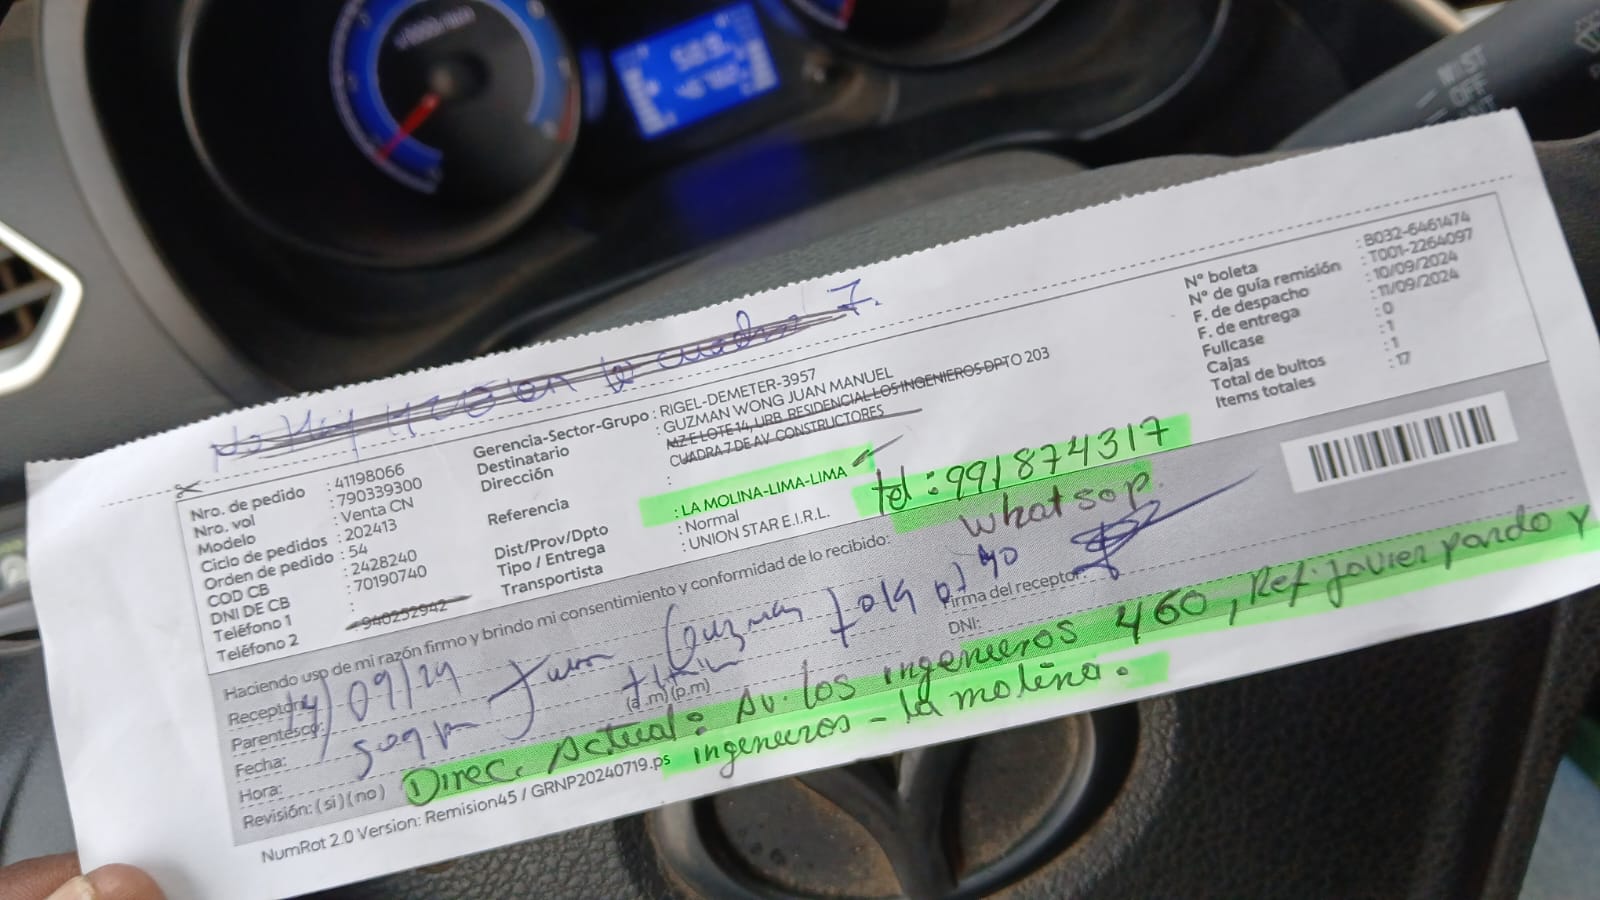 x1000r/min
MIST
OFF
No hay la cuadra 7.
Nro. de pedido : 41198066
Nro. vol : 790339300
Modelo : Venta CN
Ciclo de pedidos : 202413
Orden de pedido : 54
COD CB : 2428240
DNI DE CB : 70190740
Teléfono 1 :
Teléfono 2 : 940252942
Gerencia-Sector-Grupo : RIGEL-DEMETER-3957
Destinatario : GUZMAN WONG JUAN MANUEL
Dirección : MZ E LOTE 14, URB. RESIDENCIAL LOS INGENIEROS DPTO 203
CUADRA 7 DE AV. CONSTRUCTORES
Referencia :
Dist/Prov/Dpto : LA MOLINA-LIMA-LIMA
Tipo / Entrega : Normal
Transportista : UNION STAR E.I.R.L.
tel: 991874317
whatsap.
N° boleta : B032-6461474
N° de guía remisión : T001-2264097
F. de despacho : 10/09/2024
F. de entrega : 11/09/2024
Fullcase : 0
Cajas : 1
Total de bultos : 1
Items totales : 17
Haciendo uso de mi razón firmo y brindo mi consentimiento y conformidad de lo recibido:
Receptor:
Parentesco:
Fecha:
Hora: (a.m) (p.m)
Revisión: (si) (no)
Firma del receptor:
DNI:
14/09/24 Juan Guzman
Direc. Actual: Av. los ingenieros 460, Ref: Javier pardo y
ingenieros - la molina.
NumRot 2.0 Version: Remision45 / GRNP20240719.ps